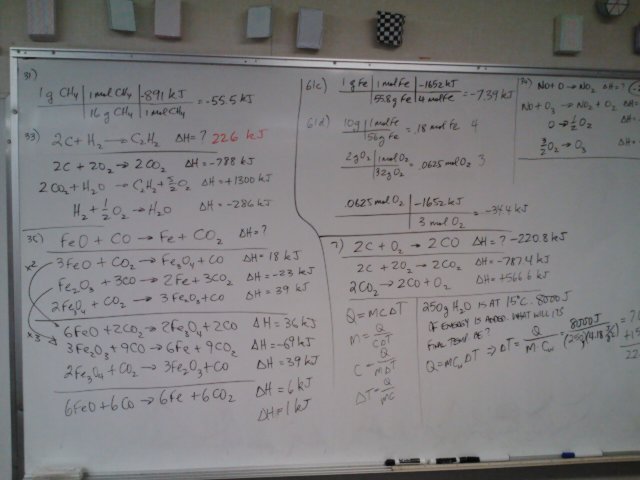 31)
1g CH₄ | 1 mol CH₄ | -891 kJ = -55.5 kJ
16g CH₄ | 1 mol CH₄
33) 2C + H₂ → C₂H₂ ΔH = ? 226 kJ
2C + 2O₂ → 2CO₂ ΔH = -788 kJ
2CO₂ + H₂O → C₂H₂ + 5/2 O₂ ΔH = +1300 kJ
H₂ + 1/2 O₂ → H₂O ΔH = -286 kJ
35) FeO + CO → Fe + CO₂ ΔH = ?
x2 3FeO + CO₂ → Fe₃O₄ + CO ΔH = 18 kJ
Fe₂O₃ + 3CO → 2Fe + 3CO₂ ΔH = -23 kJ
2Fe₃O₄ + CO₂ → 3Fe₂O₃ + CO ΔH = 39 kJ
6FeO + 2CO₂ → 2Fe₃O₄ + 2CO ΔH = 36 kJ
x3 3Fe₂O₃ + 9CO → 6Fe + 9CO₂ ΔH = -69 kJ
2Fe₃O₄ + CO₂ → 3Fe₂O₃ + CO ΔH = 39 kJ
6FeO + 6CO → 6Fe + 6CO₂ ΔH = 6 kJ
ΔH = 1 kJ
61c) 1g Fe | 1 mol Fe | -1652 kJ = -7.39 kJ
55.8g Fe | 4 mol Fe
61d) 10g | 1 mol Fe = .18 mol Fe 4
56g Fe
2g O₂ | 1 mol O₂ = .0625 mol O₂ 3
32g O₂
.0625 mol O₂ | -1652 kJ = -34.4 kJ
3 mol O₂
7) 2C + O₂ → 2CO ΔH = ? -220.8 kJ
2C + 2O₂ → 2CO₂ ΔH = -787.4 kJ
2CO₂ → 2CO + O₂ ΔH = +566.6 kJ
Q = MCΔT
M = Q / CΔT
C = Q / MΔT
ΔT = Q / MC
250g H₂O IS AT 15°C. 8000 J
OF ENERGY IS ADDED. WHAT WILL ITS
FINAL TEMP BE?
Q = MCwΔT ⇒ ΔT = Q / M·Cw = 8000 J / (250g)(4.18 =
NO + O → NO₂ ΔH = ?
NO + O₃ → NO₂ + O₂ ΔH
O → 1/2 O₂ ΔH =
3/2 O₂ → O₃ ΔH =